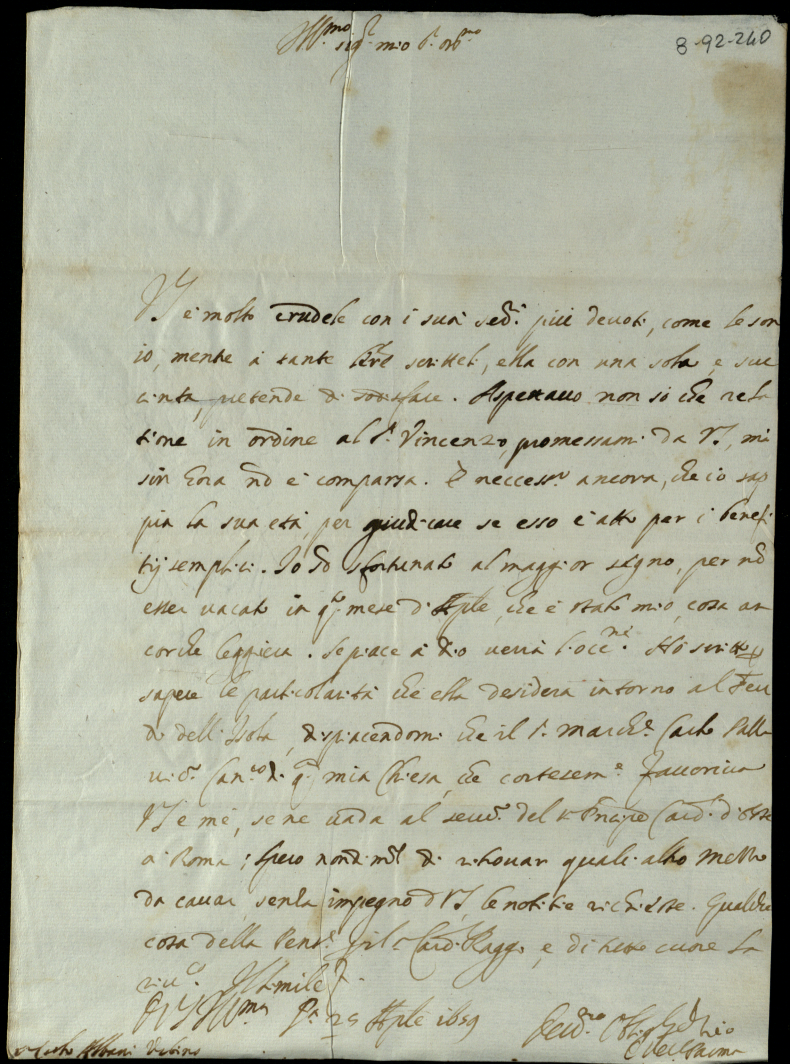 Ill.mo sig.r mio P.ron
8-92-240
VS è molto crudele con i suoi ser.i più devoti, come le son
io, mentre à tante l.re scritteli, ella con una sola, e suc
cinta, pretende di sodisfare. Aspettavo non sò che rela
tione in ordine al S.r Vincenzo, promessami da VS, mà
sin hora nõ è comparsa. È neccess.o ancora, che io sap
pia la sua età, per giudicare se esso è atto per i benefi
tij semplici. Io sõ sfortunato al maggior segno, per nõ
esser vacato in q.to mese d'Aple, che è stato mio, cosa an
corche leggiera. Se piace à Dio verrà l'occ.ne. Hò scritto p
sapere le particolarità che ella desidera intorno al Feu
do dell'Isola, dispiacendomi che il S.r March.e Carlo Palla
vic.o Can.co di q.ta mia Chiesa, che cortesem.e favoriva
VS e me, se ne vada al serv.o del S.r Principe Card. d'Este
à Roma; spero nondim.o di ritrovar qualc. altro mezzo
da cavar, senza impegno di VS, le notitie richieste. Qualche
cosa della Pens.e il S.r Card. Raggi, e di tutto cuore la
riv.o
Di VS Ill.ma P.a 25 Aple 1659
Carlo Albani Urbino